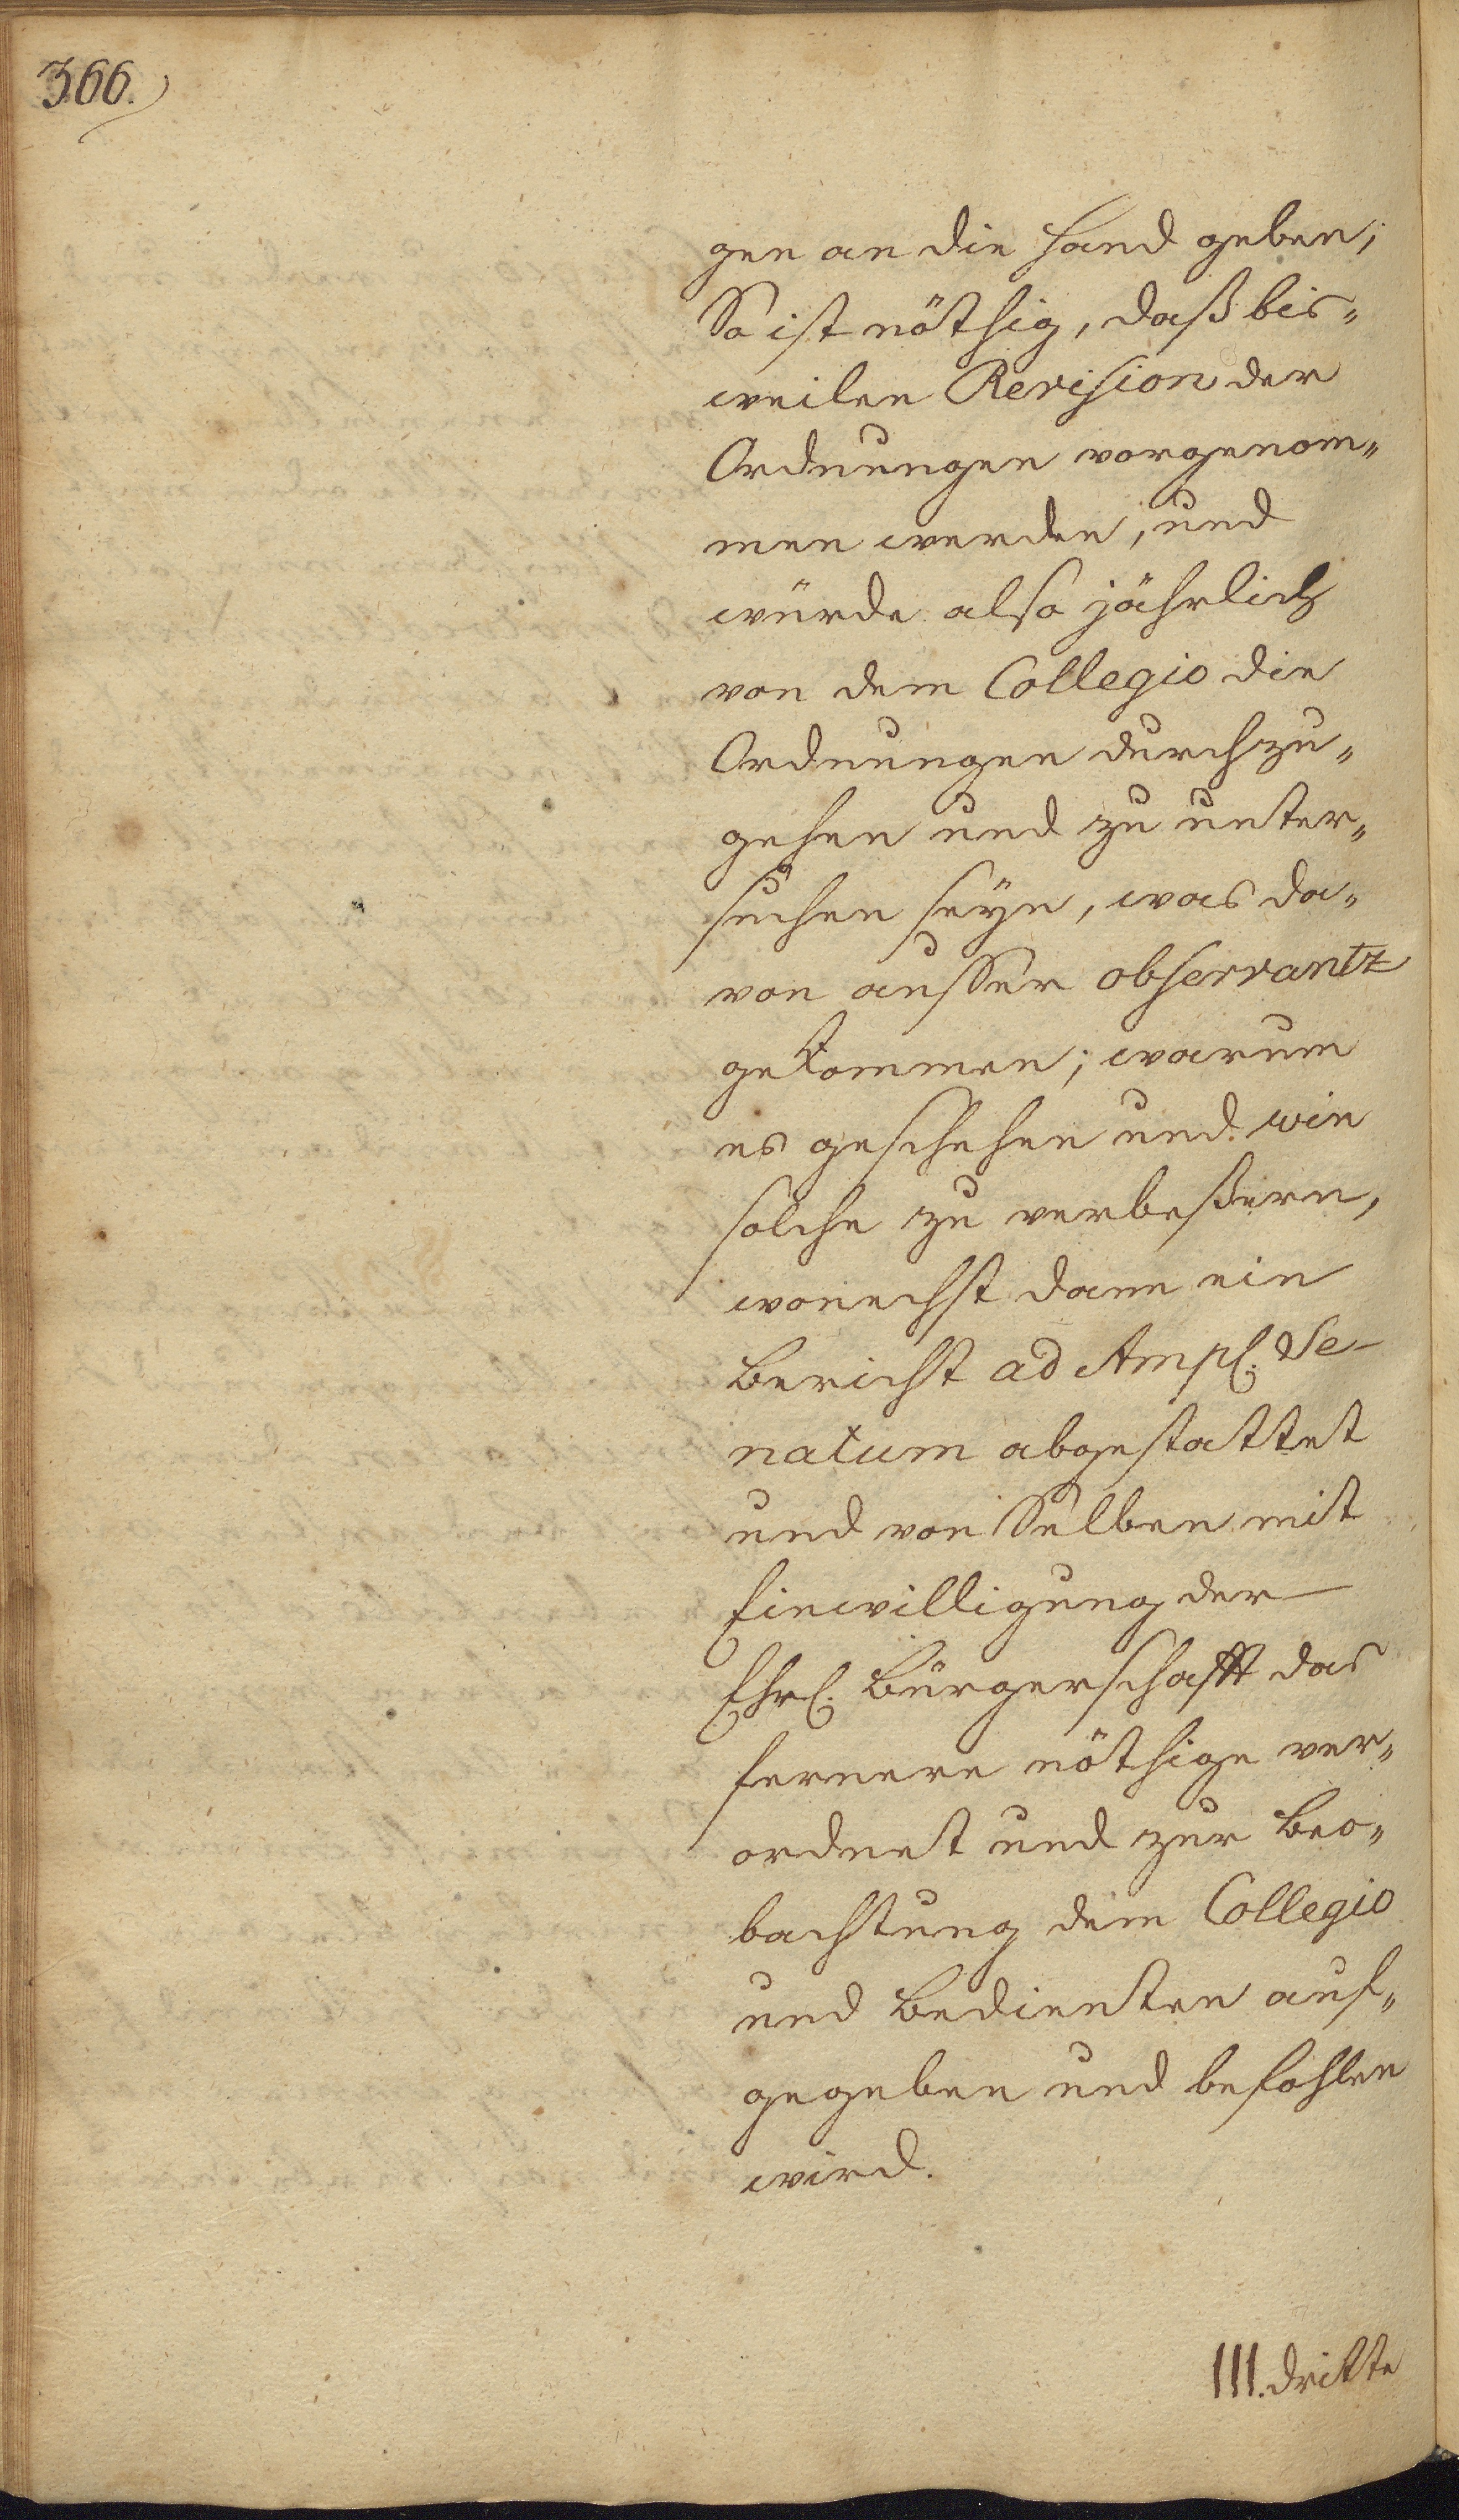 366.
gen an die Hand geben;
So ist nöthig, daß bis„
weilen Revision der
Ordnungen vorgenom„
men werden, und
würde also jährlich
von dem Collegio die
Ordnungen durchzu„
gehen und zu unter„
suchen seyn, was da„
von ausser observantz
gekommen; warum
es geschehen und wie
solche zu verbeßern,
wonechst dann ein
Bericht ad Ampl. Se-
natum abgestattet
und von Selben mit
Einwilligung der
Ehrl. Bürgerschafft das
fernere nöthige ver„
ordnet und zur Beo„
bachtung dem Collegio
und Bedienten auf„
gegeben und befohlen
wird.
III. dritte